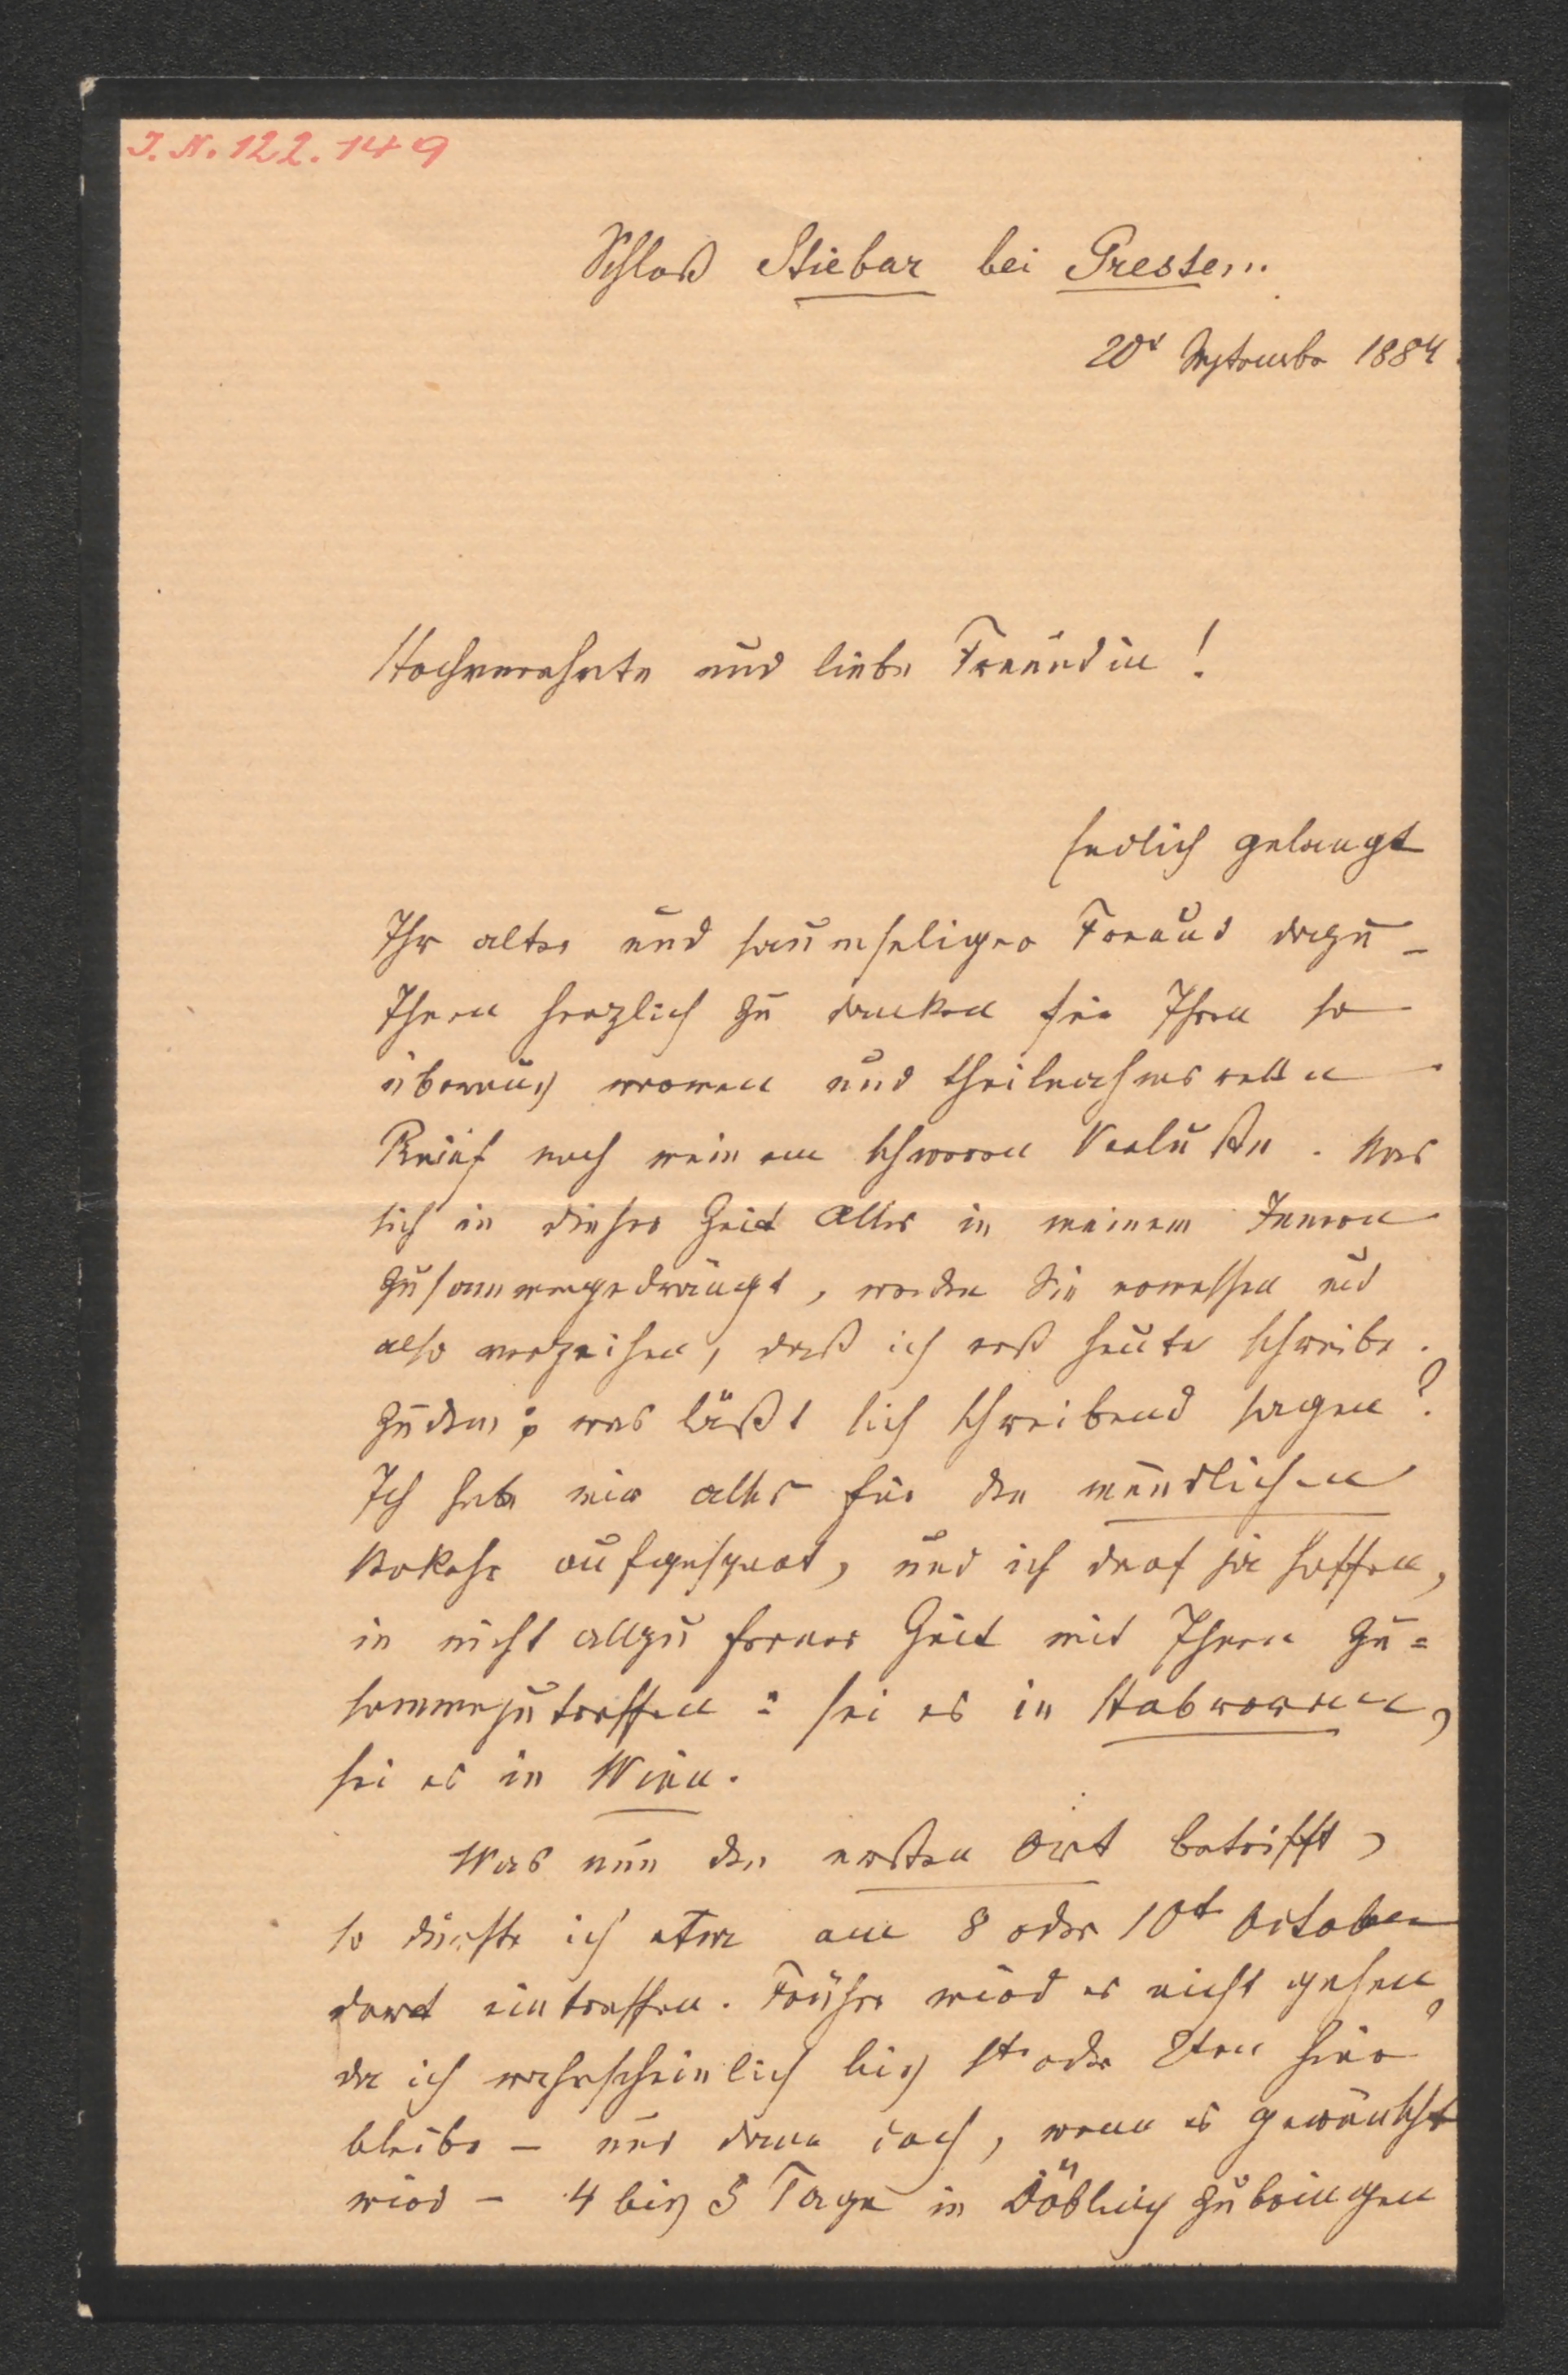 I. N. 122.149
Schloß Stiebar bei Gresten.
20t September 1884.
Hochverehrte und liebe Freundin!
Endlich gelangt
Ihr alter und saumseliger Freund dazu –
Ihnen herzlich zu danken für Ihren so
überaus warmen und theilnahmsvollen
Brief nach meinem schweren Verluste. Was
sich in dieser Zeit Alles in meinem Innern
zusammengedrängt, werden Sie ermessen und
also verzeihen, daß ich erst heute schreibe.
Zudem; was läßt sich schreibend sagen?
Ich habe mir alles für den mündlichen
Verkehr aufgespart, und ich darf ja hoffen,
in nicht allzu ferner Zeit mit Ihnen zu=
sammenzutreffen: sei es in Habrowan,
sei es in Wien.
Was nun den ersten Ort betrifft,
so dürfte ich etwa am 8 oder 10t October
dort eintreffen. Früher wird es nicht gehen,
da ich wahrscheinlich bis 1t. oder 2ten hier
bleibe – und dann noch, wenn es gewünscht
wird – 4 bis 5 Tage in Döbling zubringen